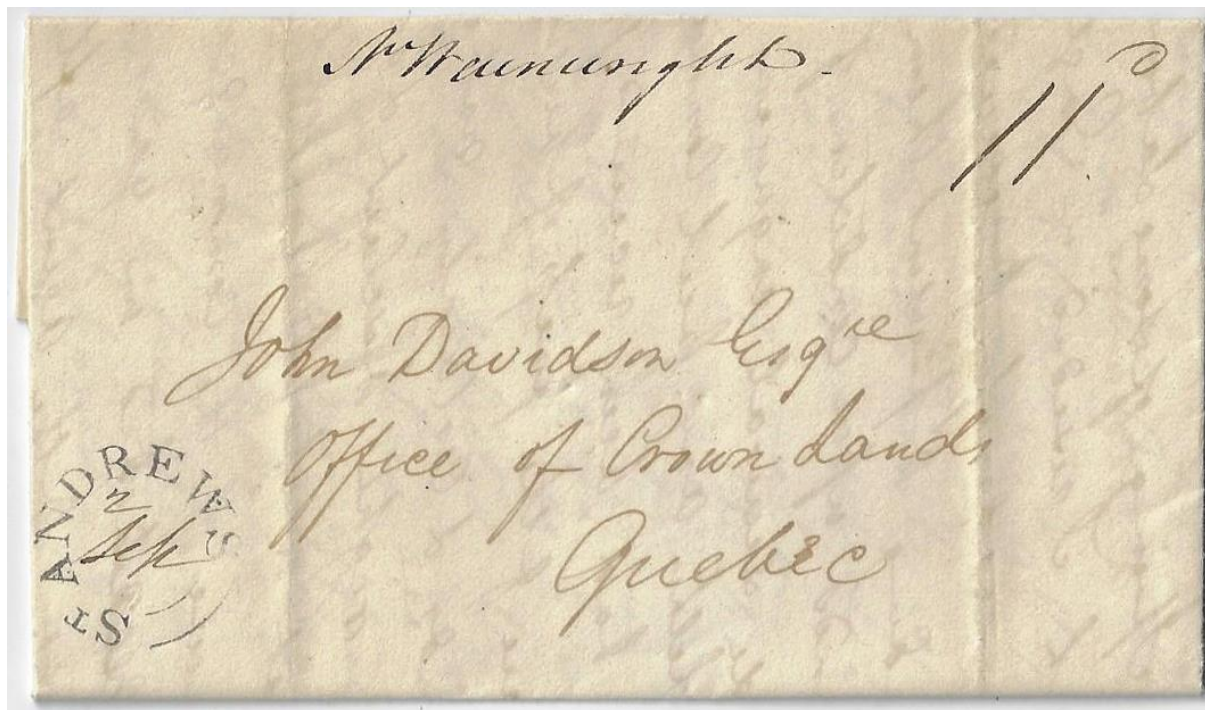 Mr Wainwright
11 D
John Davidson Esqre
Office of Crown Lands
Quebec
ST ANDREWS
2
Sep